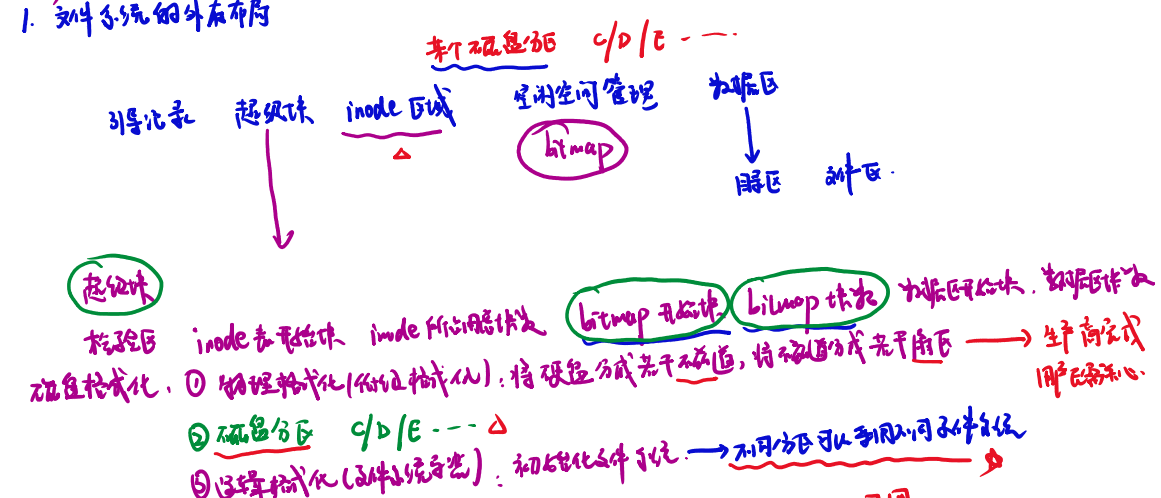 1. 文件系统的外存布局
某个磁盘分区 C/D/E ....
引导记录 超级块 inode 区域 空闲空间管理 数据区
bitmap
目录区 文件区.
超级块
校验区 inode表开始块 inode 所占用块数 bitmap 开始块 bitmap 块数 数据区开始块、数据区块数
磁盘格式化: ① 物理格式化(低级格式化): 将硬盘分成若干磁道, 将磁道分成若干扇区 → 生产商完成
用户无需关心.
② 磁盘分区 C/D/E ....
③ 逻辑格式化(文件系统安装): 初始化文件系统. → 不同分区可以采用不同文件系统